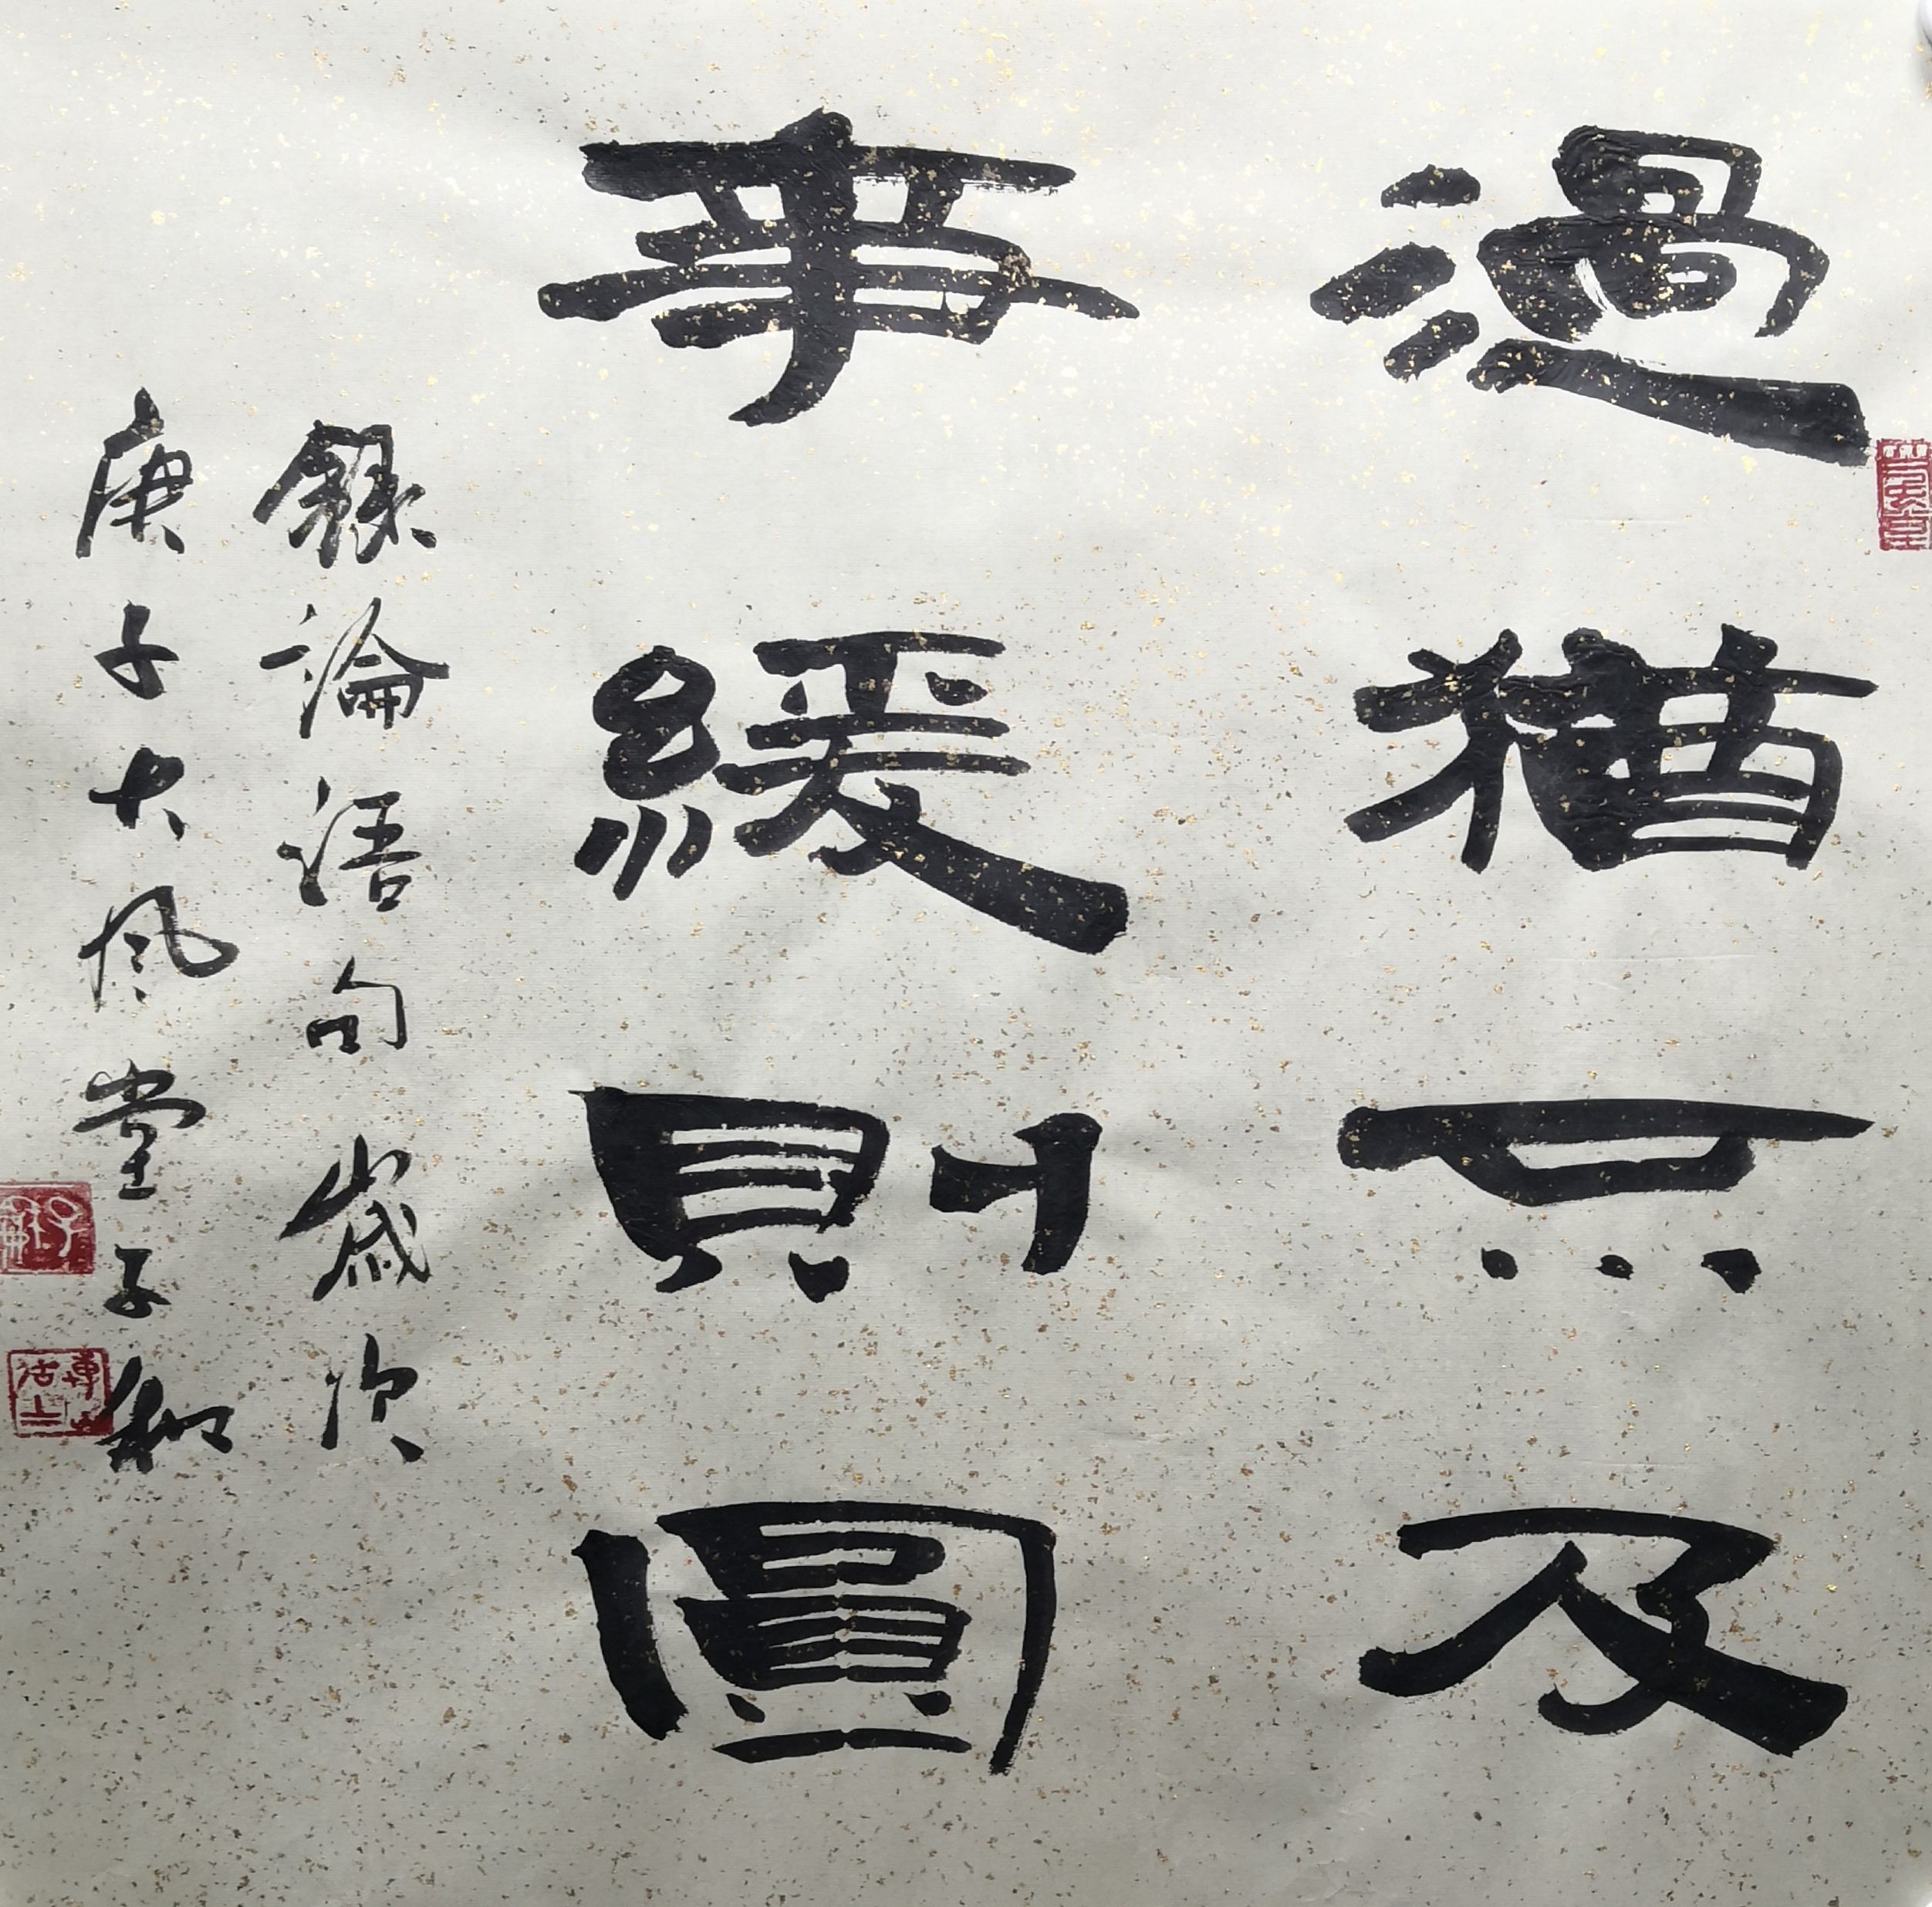 過猶不及
事緩則圓
錄論語句歲次
庚子大風堂子和